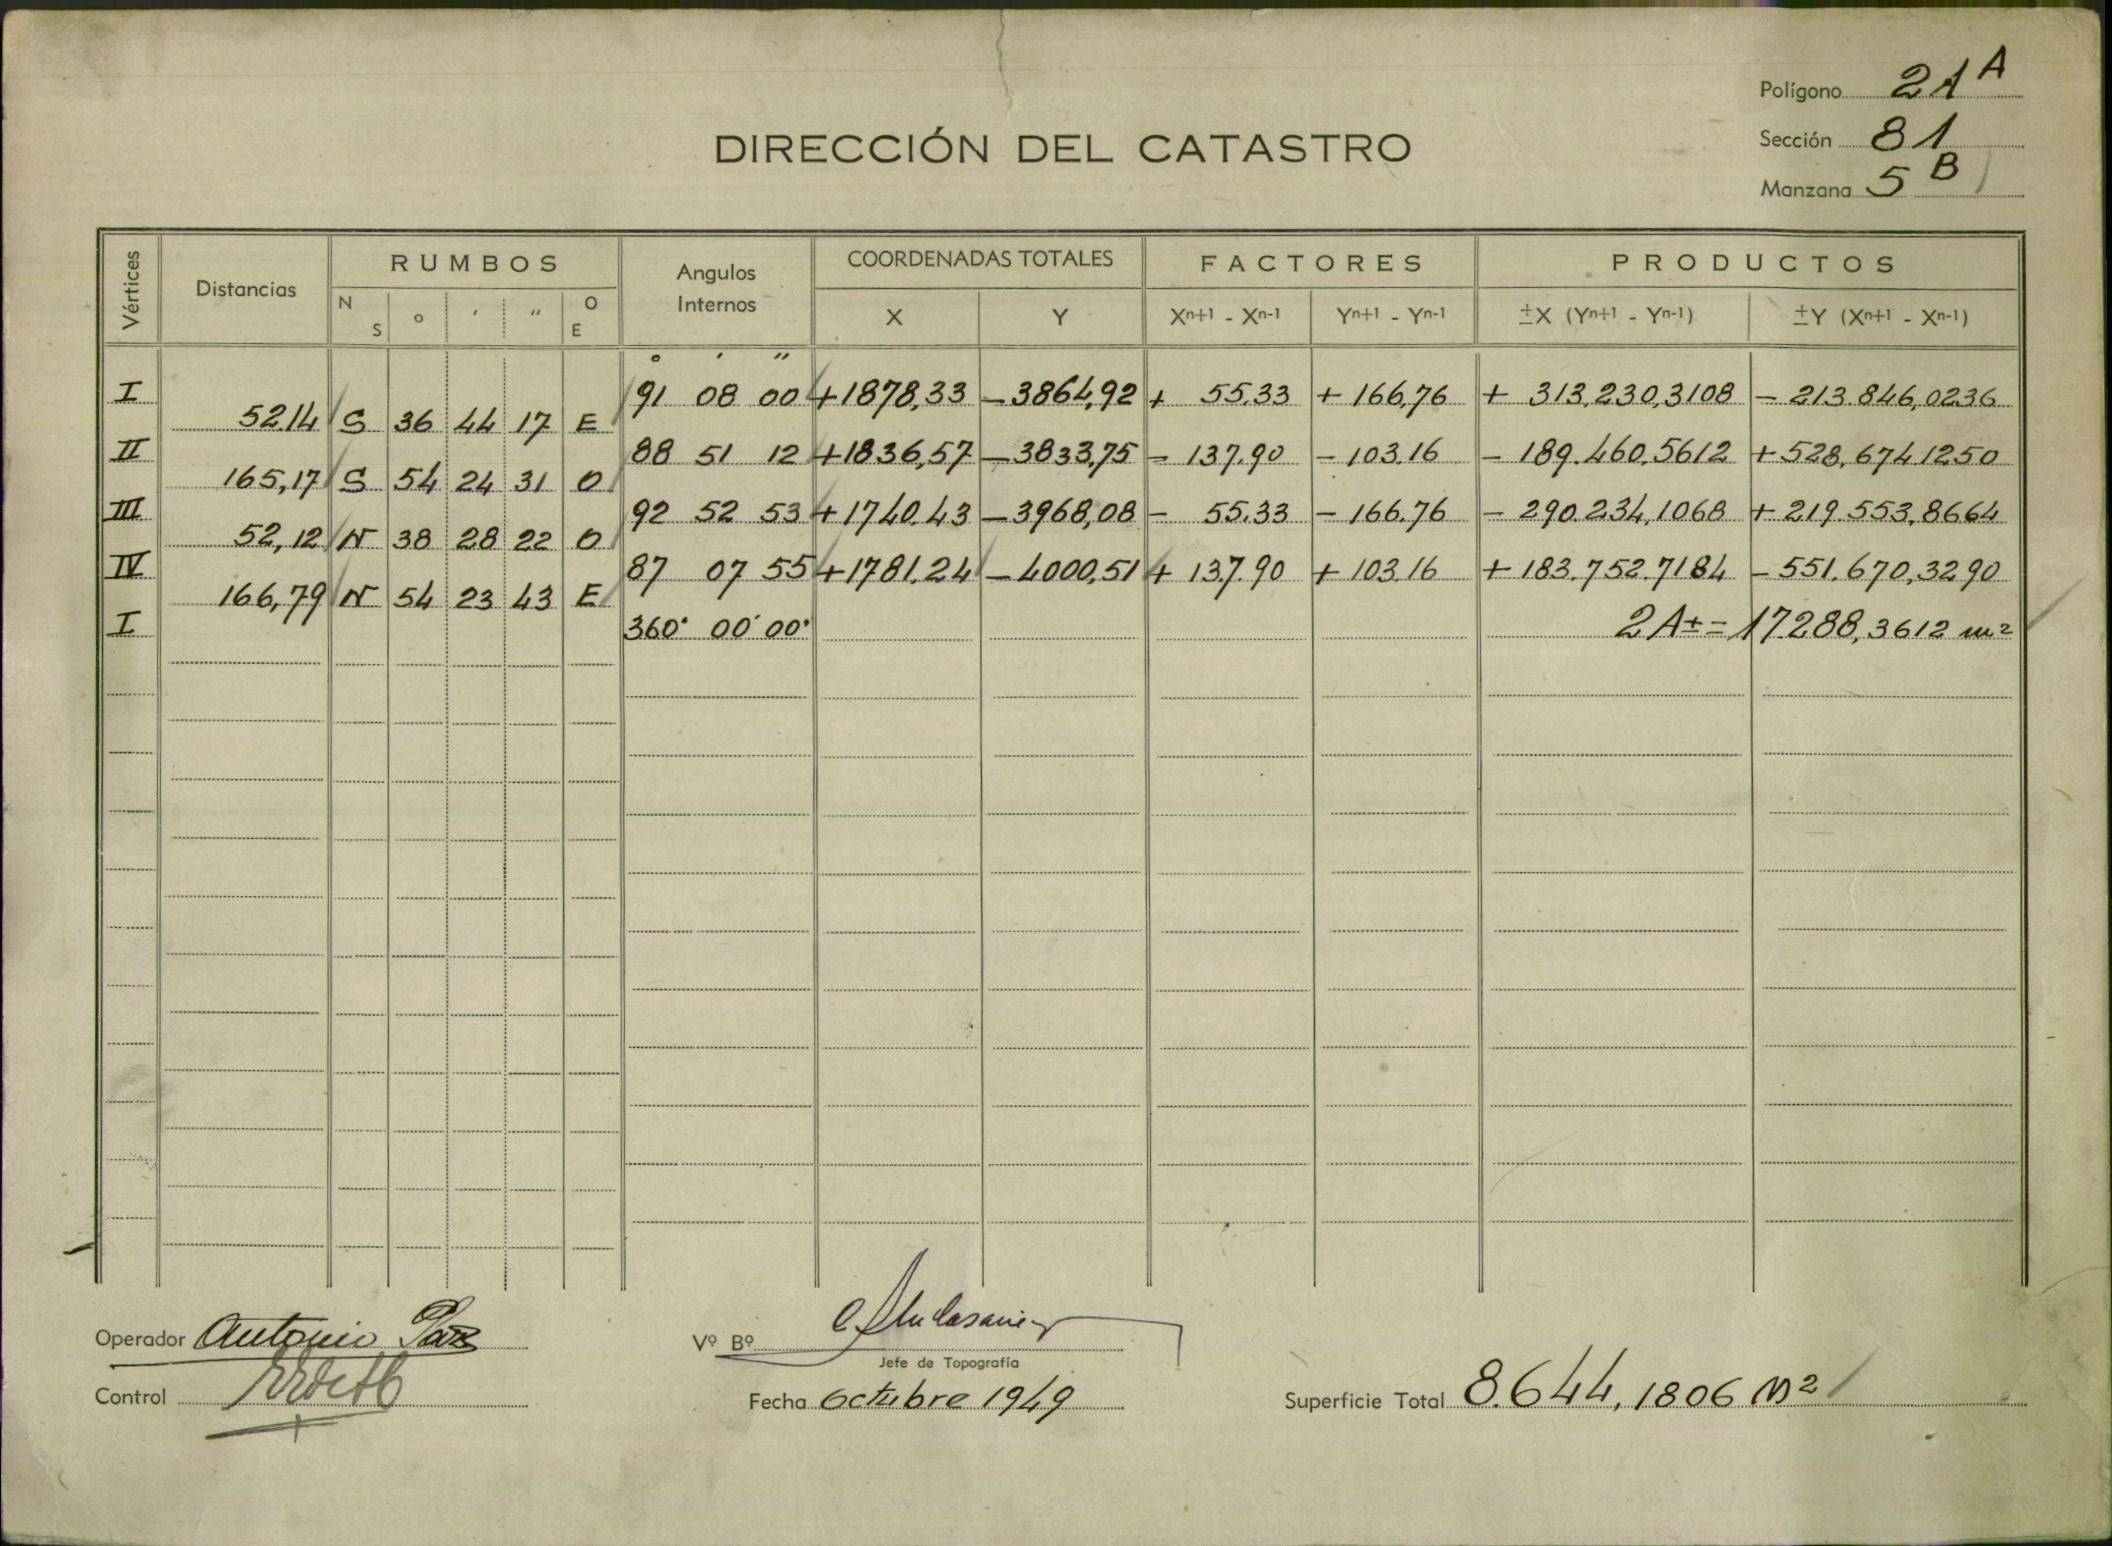 Polígono 21 A
DIRECCIÓN DEL CATASTRO
Sección 81
Manzana 5 B
Vértices Distancias RUMBOS Angulos Internos COORDENADAS TOTALES FACTORES PRODUCTOS
N S ° ′ ″ O E X Y Xn+1 - Xn-1 Yn+1 - Yn-1 ±X (Yn+1 - Yn-1) ±Y (Xn+1 - Xn-1)
° ′ ″
I 91 08 00 +1878,33 -3864,92 + 55.33 + 166,76 + 313.230,3108 - 213.846,0236
52,14 S 36 44 17 E
II 88 51 12 +1836,57 -3833,75 - 137.90 - 103.16 - 189.460,5612 +528.674,1250
165,17 S 54 24 31 O
III 92 52 53 +1740.43 -3968,08 - 55.33 - 166.76 - 290.234,1068 + 219.553,8664
52,12 N 38 28 22 O
IV 87 07 55 +1781.24 -4000,51 + 137.90 + 103.16 + 183.752.7184 - 551.670,3290
166,79 N 54 23 43 E
I 360° 00′ 00″ 2A± = 17288,3612 m²
Operador Antonio Paz
Vº Bº
Jefe de Topografía
Control
Fecha Octubre 1949
Superficie Total 8.644,1806 m²